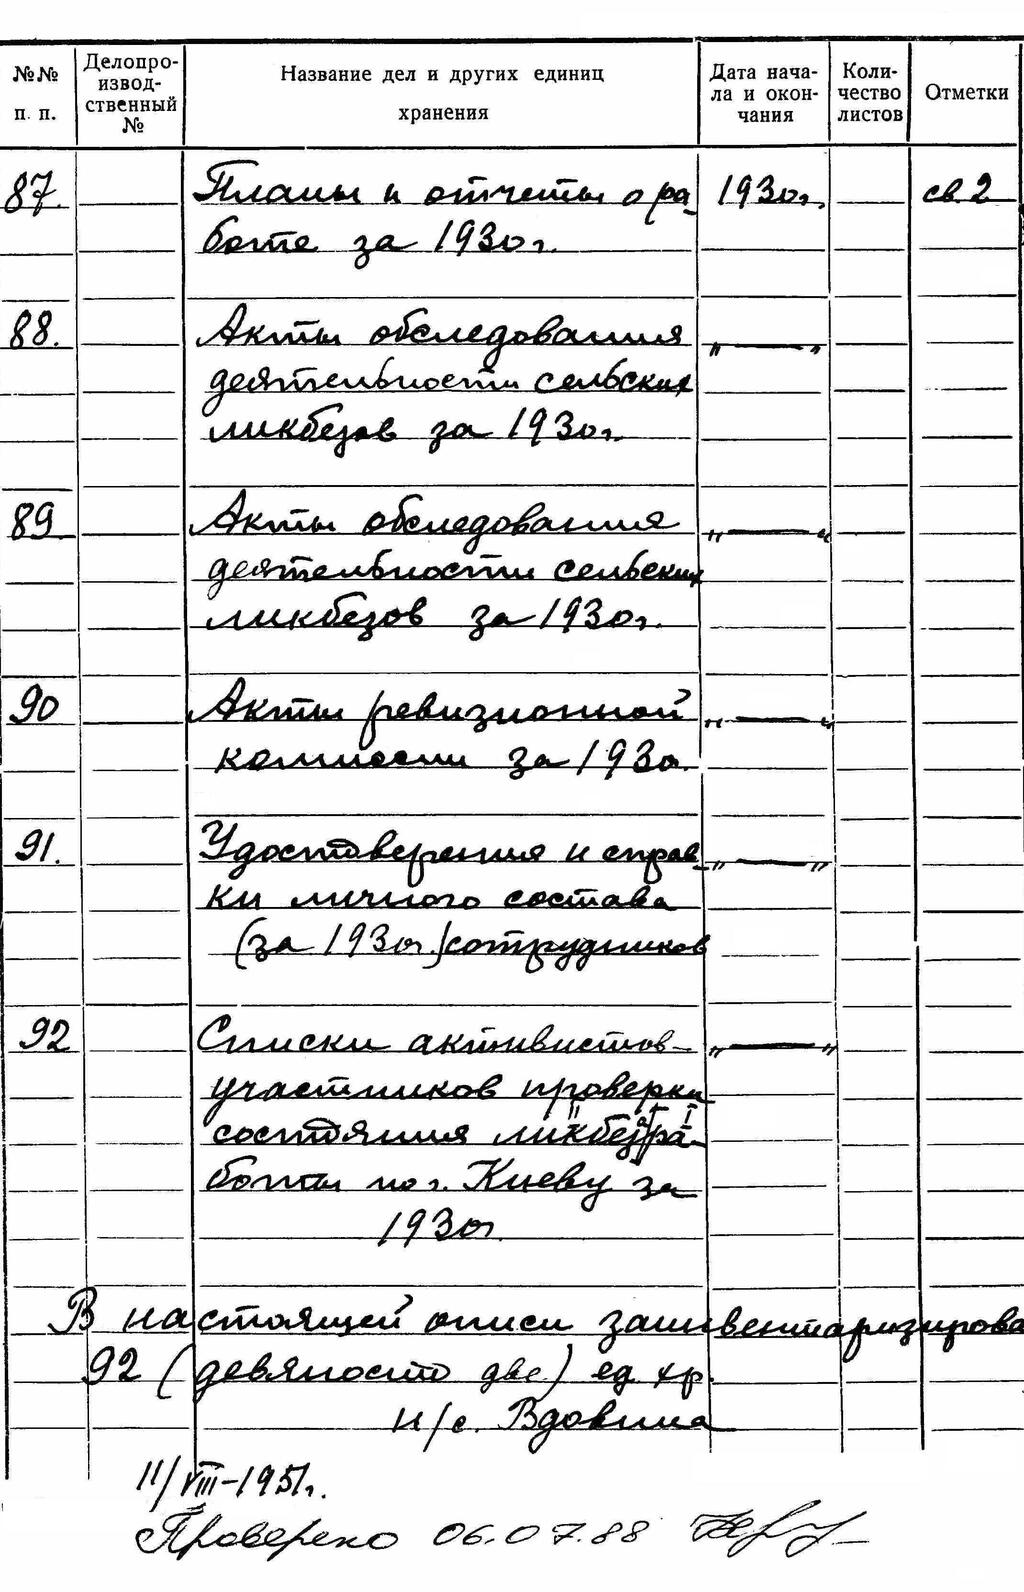 №№ п. п.
Делопро-
извод-
ственный
№
Название дел и других единиц
хранения
Дата нача-
ла и окон-
чания
Коли-
чество
листов
Отметки
87. Планы и отчеты о ра- 1930г. св. 2
боте за 1930г.
88. Акты обследования „ — „
деятельности сельских
ликбезов за 1930г.
89 Акты обследования „ — „
деятельности сельских
ликбезов за 1930г.
90 Акты ревизионной „ — „
комиссии за 1930.
91. Удостоверения и справ- „ — „
ки личного состава
(за 1930г.) сотрудников
92 Списки активистов- „ — „
участников проверки
состояния ликбез ра-
боты по г. Киеву за
1930г
В настоящей описи заинвентаризирова
92 (девяносто две) ед. хр.
н/с. Вдовина
11/VIII-1951г.
Проверено 06.07.88